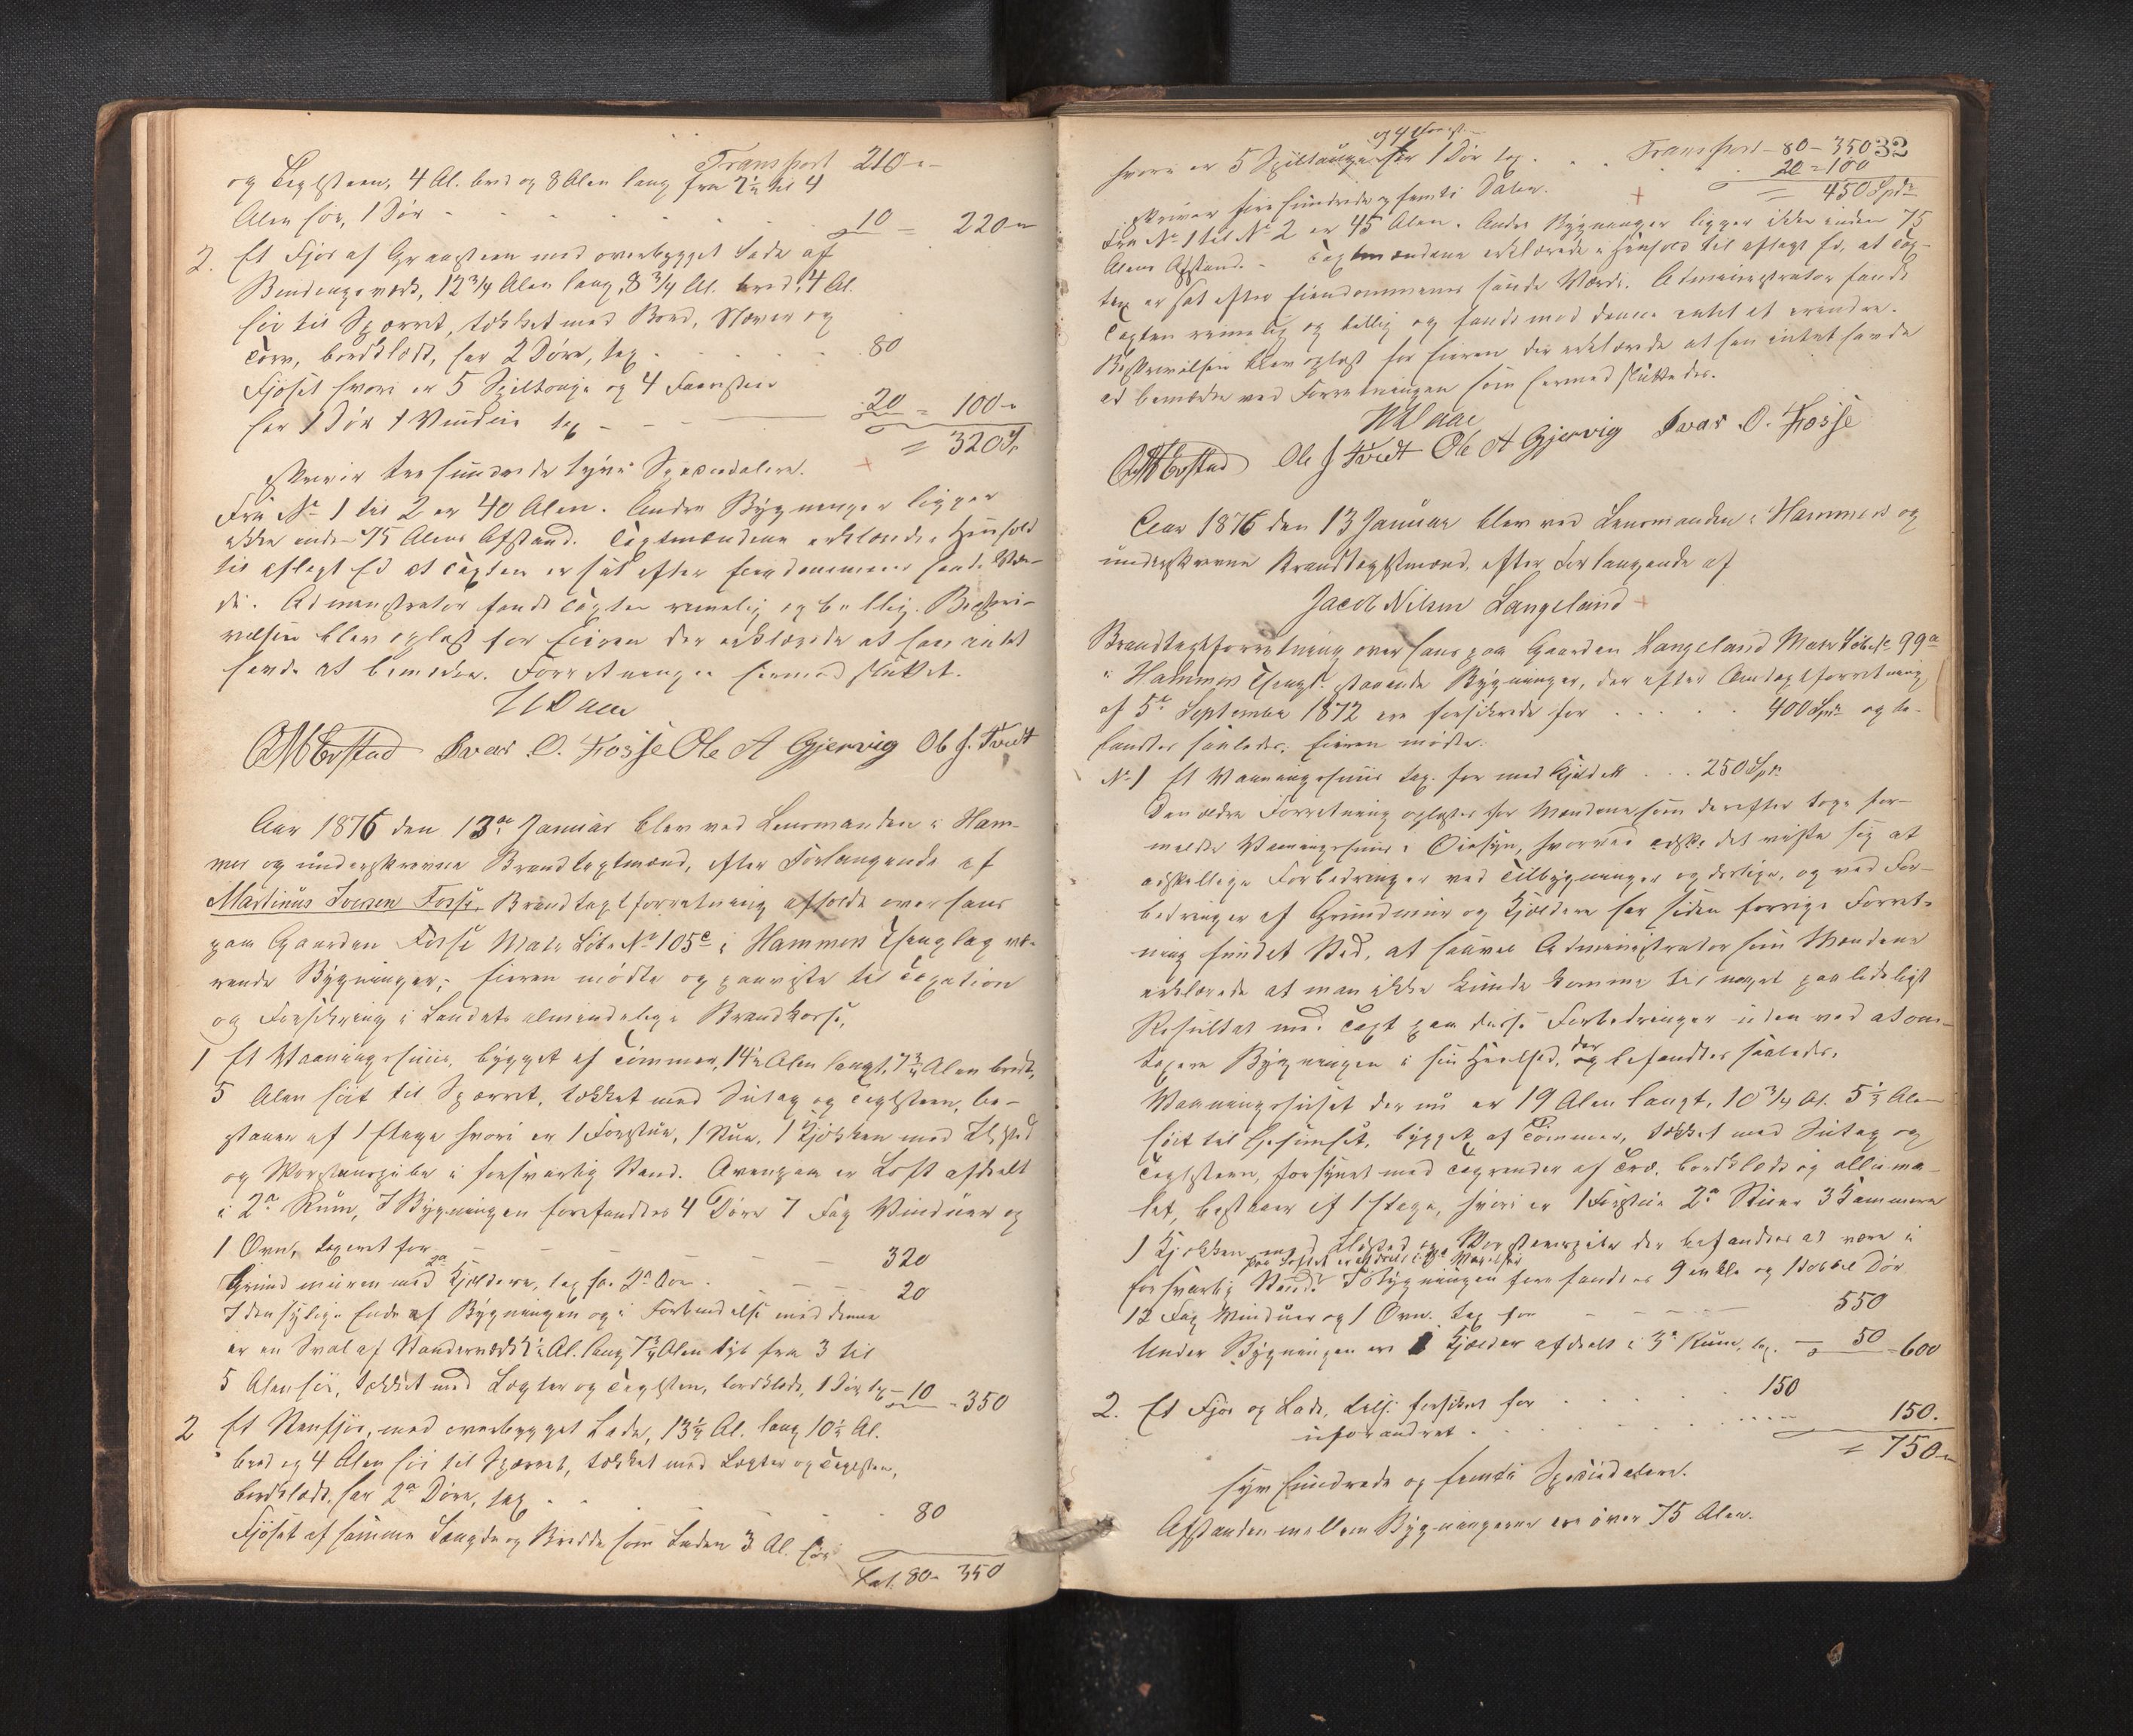 Transport 210 "-
og Teglsteen, 4 Al. bred og 8 Alen lang fra 2½ til 4
Alen høi, 1 Dör - - - - 10 = 220 "
2. Et Fjös af Graasteen med overbygget Lade af
Bindingsværk, 12 3/4 Alen lang, 8 3/4 Al. bred, 4 Al.
höi til Sparret, tækket med Bord, Næver og
Törv, bordklædt, har 2 Döre, tax. . . . 80
Fjöset hvori er 5 Spiltouge og 4
har 1 Dör 1 Vindue tax - - - 20 = 100 "
= 320 S.
skriver tre hundrede tyve Speciedalere.
Fra No 1 til 2 er 40 Alen. Andre Bygninger ligger
ikke inden 75 Alens Afstand. Taxtmændene erklærede i Henhold
til aflagt Ed at Taxten er sat efter Eiendommens sande Vær-
di. Administrator fandt Taxten rimelig og billig. Beskri-
velsen blev oplæst for Eieren der erklærede at han intet
havde at bemærke. Forretningen hermed sluttet.
Ivar O. Fosse Ole A Gjervig Ole J. Tveit
Aar 1876 den 13de Januar blev ved Lensmanden i Ham-
mer og underskrevne Brandtaxtmænd, efter Forlangende af
Martinus Iversen Fosse, Brandtaxtforretning afholdt over hans
paa Gaarden Fosse Matr Löbe No 105c i Hammers Thinglag væ-
rende Bygninger; Eieren mödte og paaviste til Taxation
og Forsikring i Landets almindelige Brandkasse,
1 Et Vaaningshuus, bygget af Tömmer, 14½ Alen langt, 7 3/4 Alen bredt,
5 Alen höit til Sparret, tækket med Sutag og Teglsteen, be-
staaer af 1 Etage hvori er 1 Forstue, 1 Stue, 1 Kjökken med Ildsted
og Skorsteenspibe i forsvarlig Stand. Ovenpaa er Loft afdeelt
i 2de Rum, I Bygningen forefandtes 4 Döre 7 Fag Vinduer og
1 Ovn, taxeret for - - - 320
Grundmuren med 2de Kjeldere, tax for 2de - - 20
I den sydlige Ende af Bygningen og i Forbindelse med denne
er en Sval af Stenderværk Al. lang 7 3/4 Alen dyb fra 3 til
5 Alen höi, tækket med Lægter og Teglsten, bordklædt, 1 Dör tax - 10 = 350
2 Et Steenfjös, med overbygget Lade, 13½ Al. lang 10½ Al.
bred og 4 Alen höi til Sparret, tækket med Lægter og Teglsteen,
bordklædt, har 2de Döre, tax . . . 80
Fjöset af samme Længde og Bredde som Laden 3 Al. höi
Lat. 80 - 350
Transport - 80 - 350 32
hvori er 5 Spiltouge har 1 Dör tax . . . 20 = 100
= 450 Spd
skriver fire hundrede og femti Daler.
Fra No 1 til No 2 er 45 Alen. Andre Bygninger ligger ikke inden 75
Alens Afstand. - Taxtmændene erklærede i Henhold til aflagt Ed, at Tax-
ten er sat efter Eiendommens sande Værdi. Administrator fandt
Taxten rimelig og billig og fandt mod denne intet at erindre.
Beskrivelsen blev oplæst for Eieren der erklærede at han intet havde
at bemærke ved Forretningen som hermed sluttedes.
Ole J Tveit Ole A Gjervig Ivar O. Fosse
Aar 1876 den 13 Januar blev ved Lensmanden i Hammer og
underskrevne Brandtaxtmænd, efter Forlangende af
Jacob Nilsen Langeland
Brandtaxtforretning over hans paa Gaarden Langeland Matr Löbe No 99a
i Hammers Thingl. staaende Bygninger, der efter Omtaxtforretning
af 5te September 1872 ere forsikrede for . . . 400 Spd og be-
fandtes saaledes: Eieren mödte.
No 1 Et Vaaningshuus tax. for med Kjelder . . . 250 Spd.
Den ældre Forretning oplæstes for Mændene, som derefter toge for-
meldte Vaaningshuus i Öiesyn, hvorved det viste sig at
adskillige Forbedringer ved Tilbygninger og deslige, og ved For-
bedringer af Grundmur og Kjeldere har siden forrige Forret-
ning fundet Sted, at saavel Administrator som Mændene
erklærede at man ikke kunde komme til noget paalideligt
Resultat med Taxt paa disse Forbedringer uden ved at om-
taxere Bygningen i sin Heelhed, der befandtes saaledes,
Vaaningshuset der nu er 19 Alen langt, 10 3/4 Al. 5½ Alen
höit til Gesimset, bygget af Tömmer, tækket med Sutag og
Teglsteen, forsynet med Tagrender af Træ, bordklædt og olliema-
let, bestaaer af 1 Etage, hvori er 1 Forstue 2de Stuer 3 Kammere
1 Kjökken med Ildsted og Skorsteenspibe der befandtes at være i
paa Loftet er afdeelt i Værelser
forsvarlig Stand. I Bygningen forefandtes 9 enkle og 1 dobbel Dör
12 Fag Vinduer og 1 Ovn. tax for - - - 550
Under Bygningen er Kjelder afdeelt i 3de Rum, tax. - 50 = 600
2. Et Fjös og Lade, forsikret for . . . 150
uforandret . . . 150.
= 750 "
syv hundrede og femti Speciedalere.
Afstanden mellem Bygningerne er over 75 Alen.